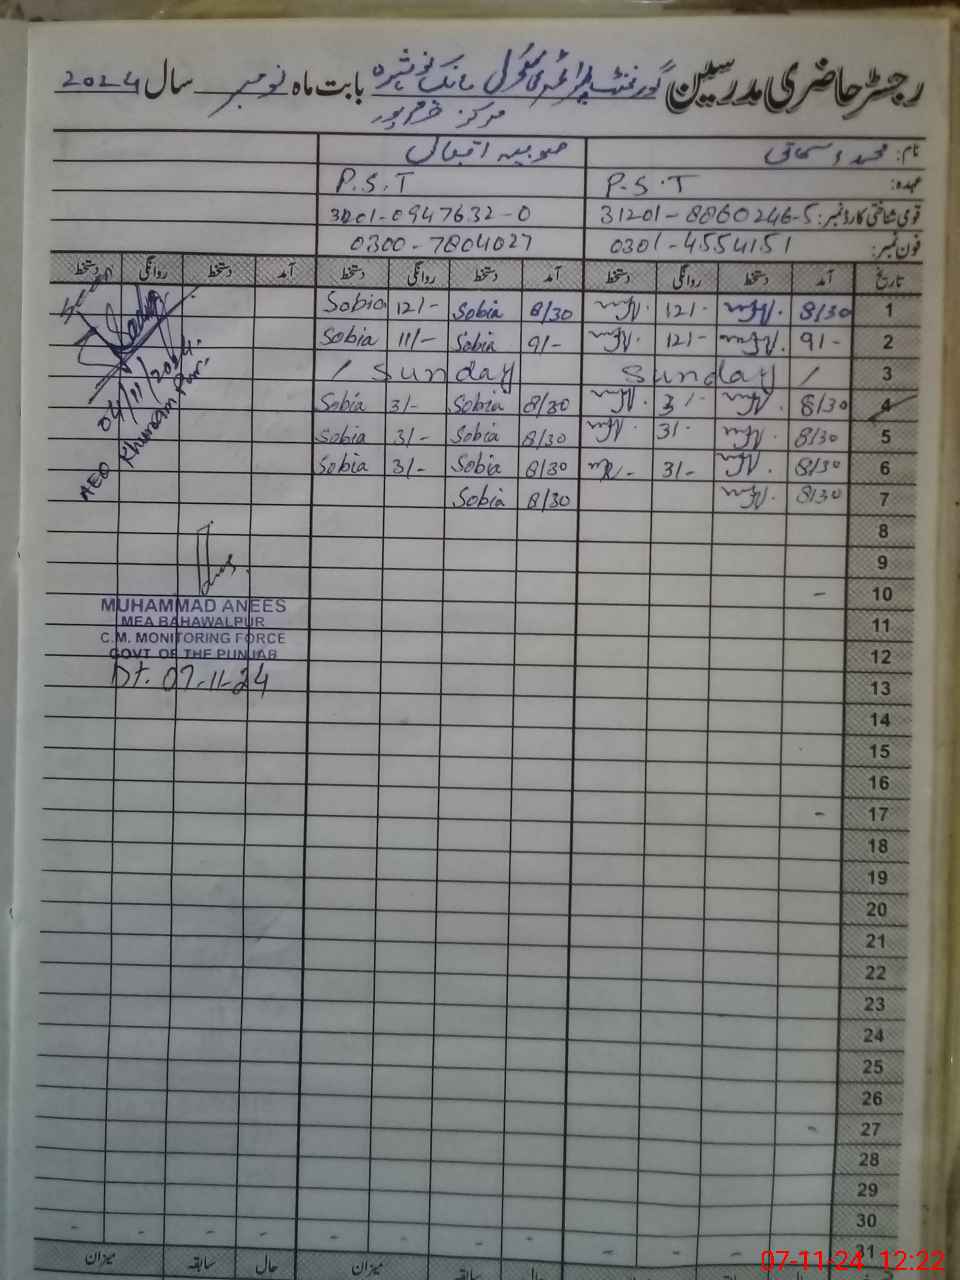 رجسٹر حاضری مدرسین گورنمنٹ پرائمری سکول مانک نوشہرہ بابت ماہ نومبر سال 2024
مرکز خرم پور
نام: محمد صوبیہ اقبال
عہدہ: P.S.T P.S.T
قومی شناختی کارڈ نمبر: 31201-8860246-5 3201-0947632-0
فون نمبر: 0301-4554151 0300-7804027
تاریخ آمد دستخط روانگی دستخط آمد دستخط روانگی دستخط آمد دستخط روانگی دستخط
1 8/30 12/- 8/30 Sobia 12/- Sobia
2 9/- 12/- 9/- Sobia 11/- Sobia
3 / Sunday / Sunday
4 8/30 3/- 8/30 Sobia 3/- Sobia
5 8/30 3/- 8/30 Sobia 3/- Sobia
6 8/30 3/- 8/30 Sobia 3/- Sobia
7 8/30 8/30 Sobia
8
9
10
11
12
13
14
15
16
17
18
19
20
21
22
23
24
25
26
27
28
29
30
31
04/11/2024.
AEO Khuram Pur
MUHAMMAD ANEES
MEA BAHAWALPUR
C.M. MONITORING FORCE
GOVT OF THE PUNJAB
Dt. 07-11-24
حال سابقہ میزان حال سابقہ میزان
07-11-24 12:22